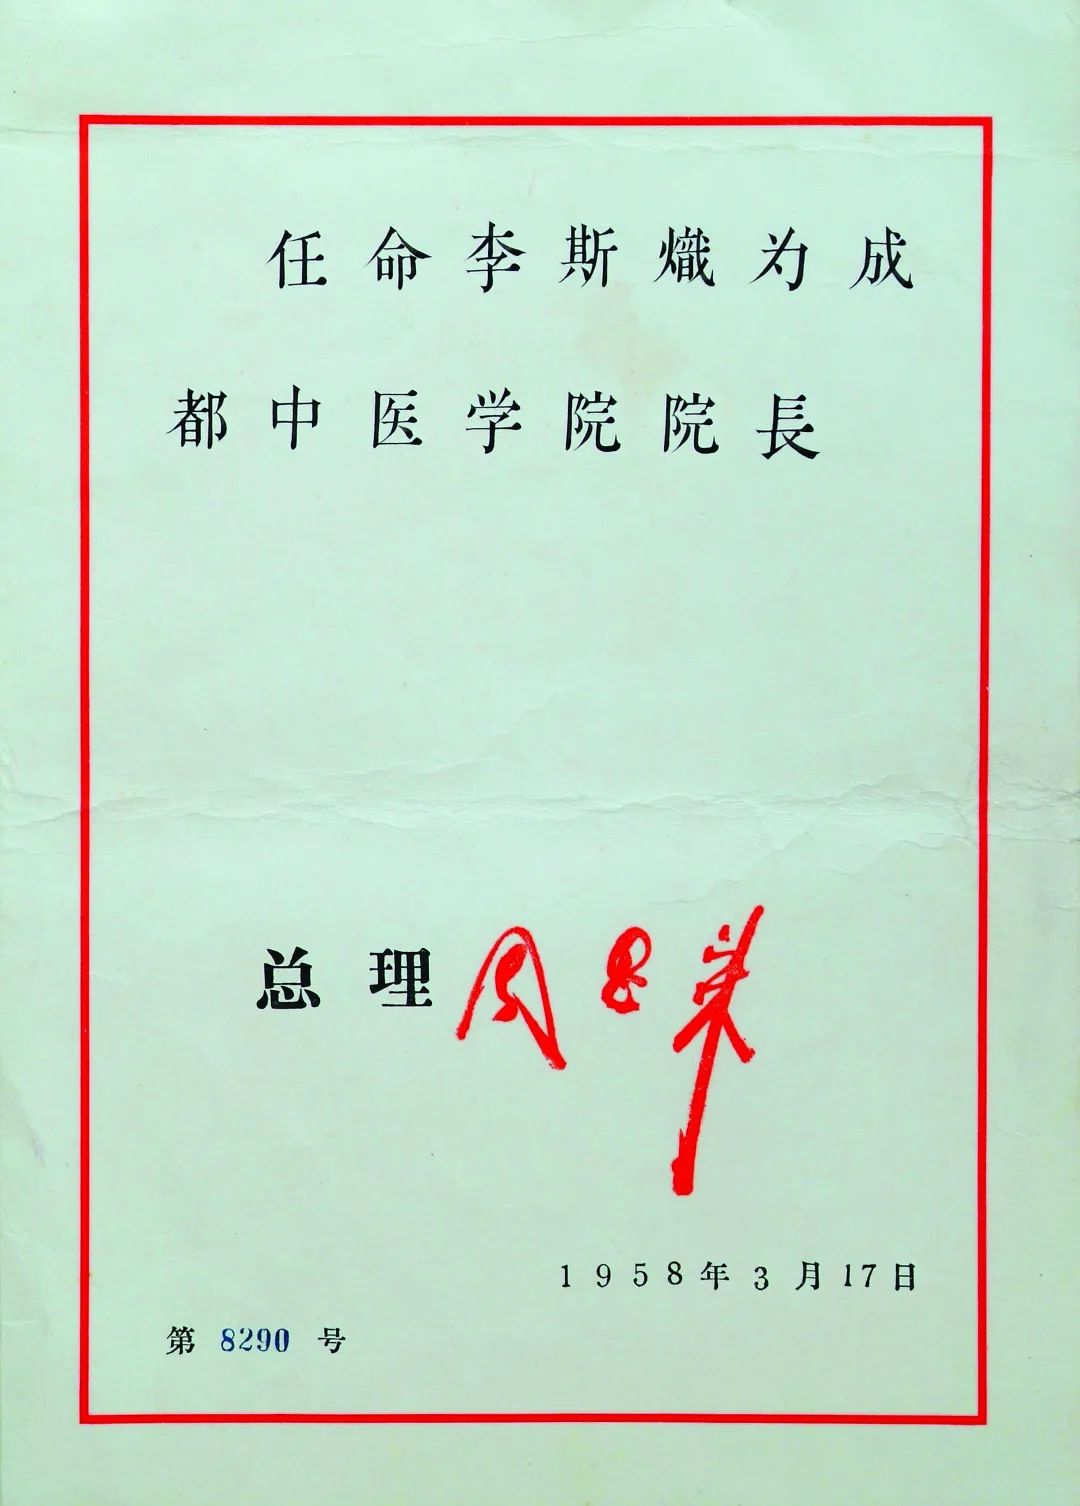 任命李斯熾为成
都中医学院院長
总理 周恩来
1958年3月17日
第 8290 号